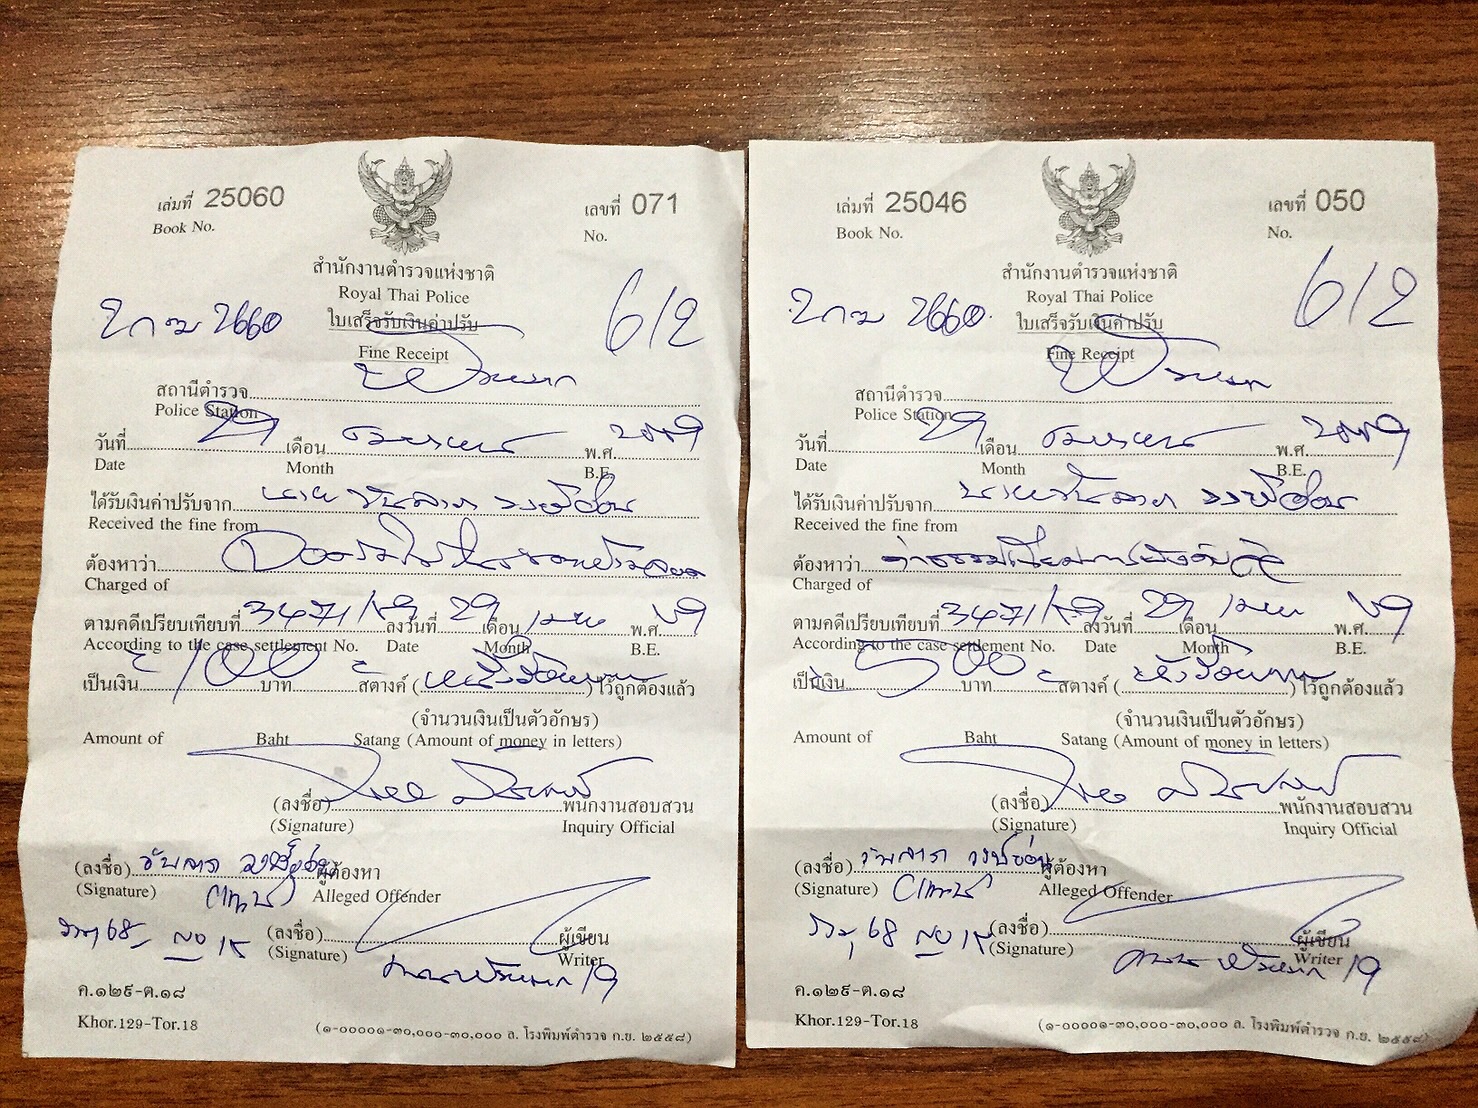 เล่มที่ 25060
Book No.
เลขที่ 071
No.
สำนักงานตำรวจแห่งชาติ
Royal Thai Police
ใบเสร็จรับเงินค่าปรับ
Fine Receipt
2กฆ 2660
6/2
สถานีตำรวจ
Police Station
วันที่ 29 เดือน เมษายน พ.ศ. 2559
Date Month B.E.
ได้รับเงินค่าปรับจาก นาย วันลาภ
Received the fine from
ต้องหาว่า จอดรถ
Charged of
ตามคดีเปรียบเทียบที่ 3471/59 ลงวันที่ 29 เดือน เมย พ.ศ. 59
According to the case settlement No. Date Month B.E.
เป็นเงิน 100 บาท สตางค์ (หนึ่งร้อยบาท) ไว้ถูกต้องแล้ว
(จำนวนเงินเป็นตัวอักษร)
Amount of Baht Satang (Amount of money in letters)
(ลงชื่อ) พนักงานสอบสวน
(Signature) Inquiry Official
(ลงชื่อ) วันลาภ ผู้ต้องหา
(Signature) Alleged Offender
(ลงชื่อ) ผู้เขียน
(Signature) Writer
ค.๑๒๙-ต.๑๘
Khor.129-Tor.18
(๑-๐๐๐๐๑-๓๐,๐๐๐-๓๐,๐๐๐ ล. โรงพิมพ์ตำรวจ ก.ย. ๒๕๕๘)
เล่มที่ 25046
Book No.
เลขที่ 050
No.
สำนักงานตำรวจแห่งชาติ
Royal Thai Police
ใบเสร็จรับเงินค่าปรับ
Fine Receipt
2กฆ 2660
6/2
สถานีตำรวจ
Police Station
วันที่ 29 เดือน เมษายน พ.ศ. 2559
Date Month B.E.
ได้รับเงินค่าปรับจาก นายวันลาภ
Received the fine from
ต้องหาว่า ค่าธรรมเนียมการบังคับล้อ
Charged of
ตามคดีเปรียบเทียบที่ 3471/59 ลงวันที่ 29 เดือน เมย พ.ศ. 59
According to the case settlement No. Date Month B.E.
เป็นเงิน 500 บาท สตางค์ (ห้าร้อยบาท) ไว้ถูกต้องแล้ว
(จำนวนเงินเป็นตัวอักษร)
Amount of Baht Satang (Amount of money in letters)
(ลงชื่อ) พนักงานสอบสวน
(Signature) Inquiry Official
(ลงชื่อ) วันลาภ ผู้ต้องหา
(Signature) Alleged Offender
(ลงชื่อ) ผู้เขียน
(Signature) Writer
ค.๑๒๙-ต.๑๘
Khor.129-Tor.18
(๑-๐๐๐๐๑-๓๐,๐๐๐-๓๐,๐๐๐ ล. โรงพิมพ์ตำรวจ ก.ย. ๒๕๕๘)